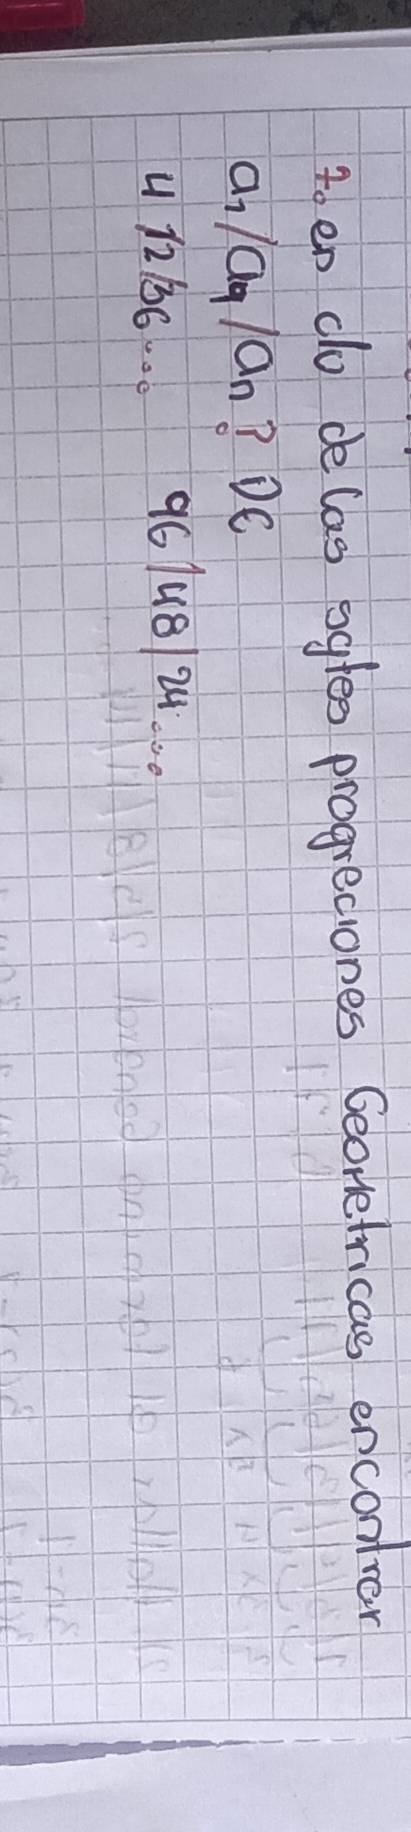 7. en c/u de las sgtes progreciones Geometricas encontrar
a1/a9/an? DE
4 12/36.... 96/48/24....